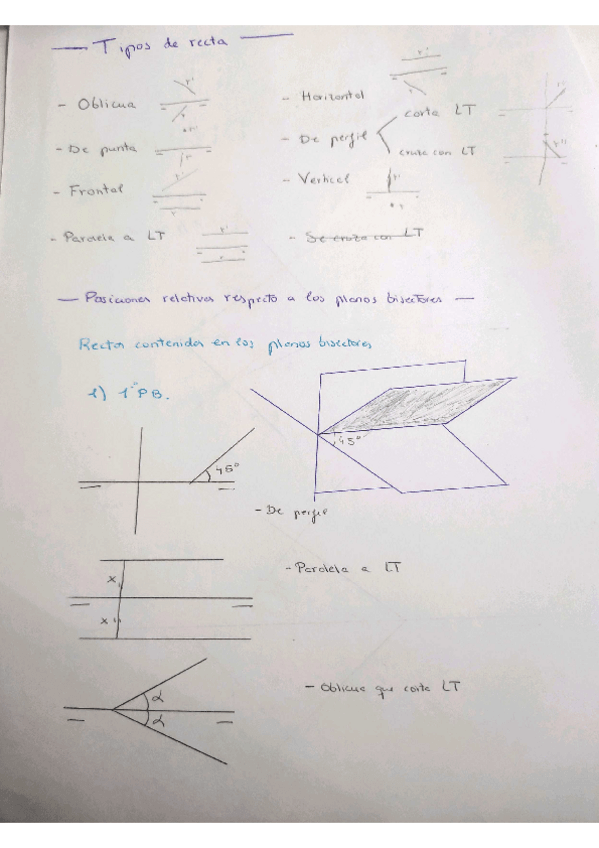 — Tipos de recta —
- Oblicua
- De punta
- Frontal
- Paralela a LT
- Horizontal
- De perfil
corta LT
cruza con LT
- Vertical
- Se cruza con LT
— Posiciones relativas respecto a los planos bisectores —
Rectas contenidas en los planos bisectores
1) 1º PB.
45º
45º
- De perfil
x
x
- Paralela a LT
α
α
- Oblicua que corta LT